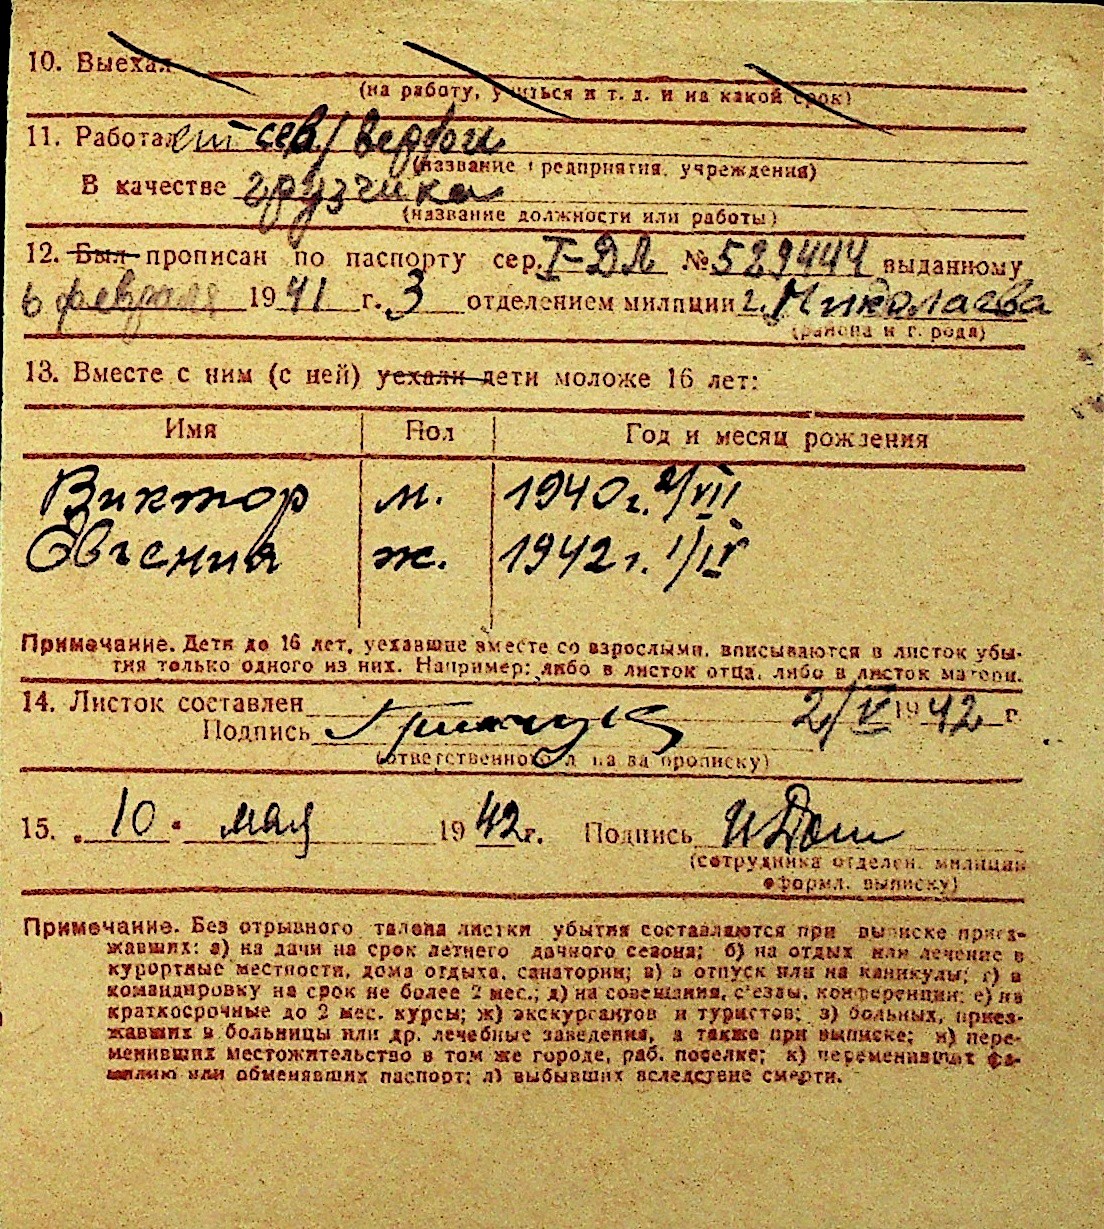 10. Выехал
(на работу, учиться и т. д. и на какой срок)
11. Работал сев/верфи
(название предприятия, учреждения)
В качестве грузчика
(название должности или работы)
12. Был прописан по паспорту сер. I-ДЛ № 529444 выданному
6 февраля 1941 г. 3 отделением милиции г. Николаева
(района и города)
13. Вместе с ним (с ней) уехали дети моложе 16 лет:
Имя Пол Год и месяц рождения
Виктор м. 1940 г. 2/VII
Евгения ж. 1942 г. 1/IV
Примечание. Дети до 16 лет, уехавшие вместе со взрослыми, вписываются в листок убы-
тия только одного из них. Например: либо в листок отца, либо в листок матери.
14. Листок составлен 2/V 1942 г.
Подпись
(ответственного л на за прописку)
15. „10" мая 1942 г. Подпись
(сотрудника отделен. милиции
оформл. выписку)
Примечание. Без отрывного талона листки убытия составляются при выписке приез-
жавших: а) на дачи на срок летнего дачного сезона; б) на отдых или лечение в
курортные местности, дома отдыха, санатории; в) в отпуск или на каникулы; г) в
командировку на срок не более 2 мес.; д) на совещания, съезды, конференции; е) на
краткосрочные до 2 мес. курсы; ж) экскурсантов и туристов; з) больных, приез-
жавших в больницы или др. лечебные заведения, а также при выписке; и) пере-
менивших местожительство в том же городе, раб. поселке; к) переменивших фа-
милию или обменявших паспорт; л) выбывших вследствие смерти.